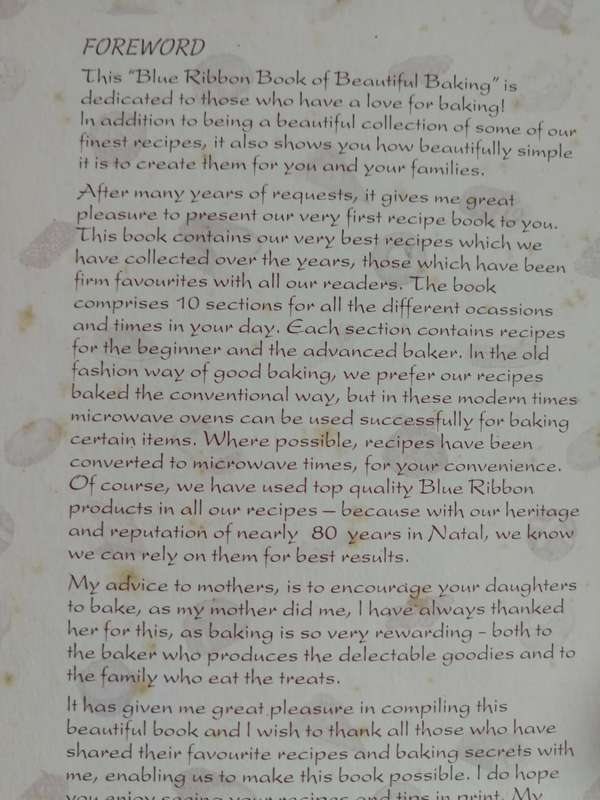 FOREWORD
This "Blue Ribbon Book of Beautiful Baking" is
dedicated to those who have a love for baking!
In addition to being a beautiful collection of some of our
finest recipes, it also shows you how beautifully simple
it is to create them for you and your families.
After many years of requests, it gives me great
pleasure to present our very first recipe book to you.
This book contains our very best recipes which we
have collected over the years, those which have been
firm favourites with all our readers. The book
comprises 10 sections for all the different ocassions
and times in your day. Each section contains recipes
for the beginner and the advanced baker. In the old
fashion way of good baking, we prefer our recipes
baked the conventional way, but in these modern times
microwave ovens can be used successfully for baking
certain items. Where possible, recipes have been
converted to microwave times, for your convenience.
Of course, we have used top quality Blue Ribbon
products in all our recipes – because with our heritage
and reputation of nearly 80 years in Natal, we know
we can rely on them for best results.
My advice to mothers, is to encourage your daughters
to bake, as my mother did me, I have always thanked
her for this, as baking is so very rewarding - both to
the baker who produces the delectable goodies and to
the family who eat the treats.
It has given me great pleasure in compiling this
beautiful book and I wish to thank all those who have
shared their favourite recipes and baking secrets with
me, enabling us to make this book possible. I do hope
you enjoy seeing your recipes and tips in print. My